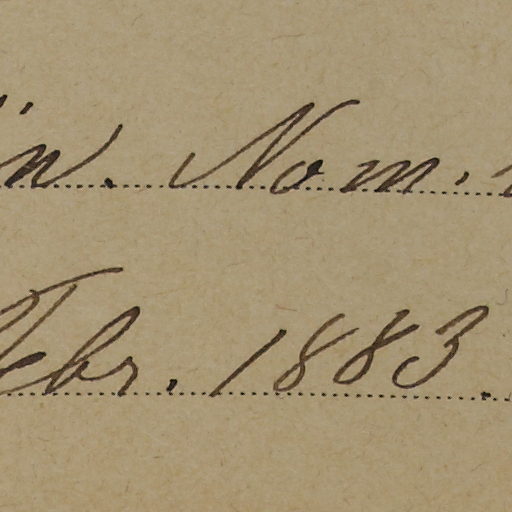 in. Nom.
Febr. 1883.